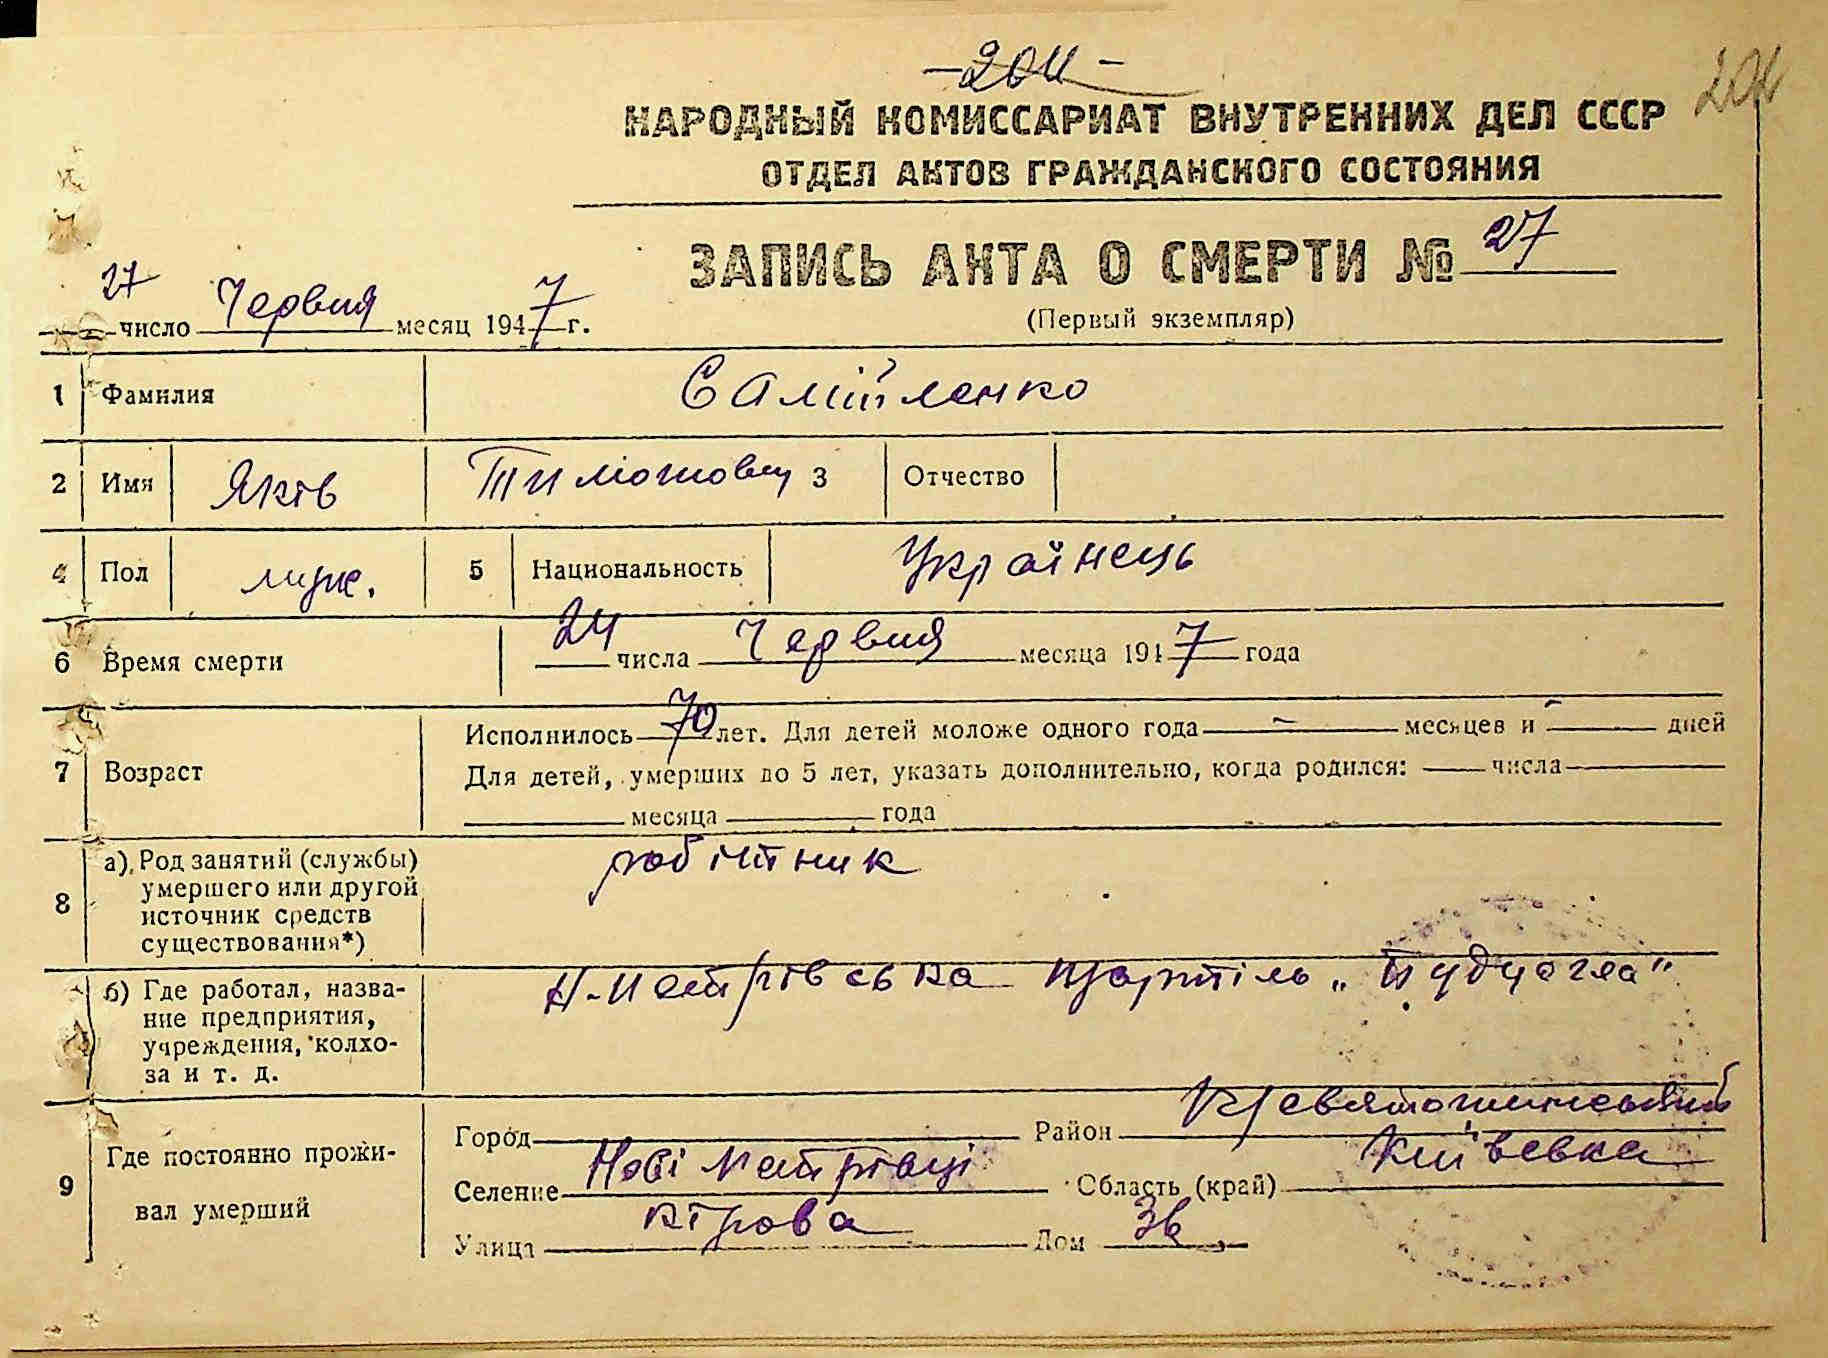 -204-
202
НАРОДНЫЙ КОМИССАРИАТ ВНУТРЕННИХ ДЕЛ СССР
ОТДЕЛ АКТОВ ГРАЖДАНСКОГО СОСТОЯНИЯ
ЗАПИСЬ АКТА О СМЕРТИ № 27
(Первый экземпляр)
27 число Червня месяц 1947 г.
1 Фамилия Самійленко
2 Имя Яків Тимошович 3 Отчество
4 Пол муж. 5 Национальность Українець
6 Время смерти 24 числа Червня месяца 1947 года
7 Возраст
Исполнилось 70 лет. Для детей моложе одного года — месяцев и — дней
Для детей, умерших до 5 лет, указать дополнительно, когда родился: числа
месяца года
8 а) Род занятий (службы) умершего или другой источник средств существования*) робітник
б) Где работал, название предприятия, учреждения, колхоза и т. д. Н-Петрівська
9 Где постоянно проживал умерший
Город Район Києвятошинський
Селение Нові Петрівці Область (край) Київська
Улица Кірова Дом 36